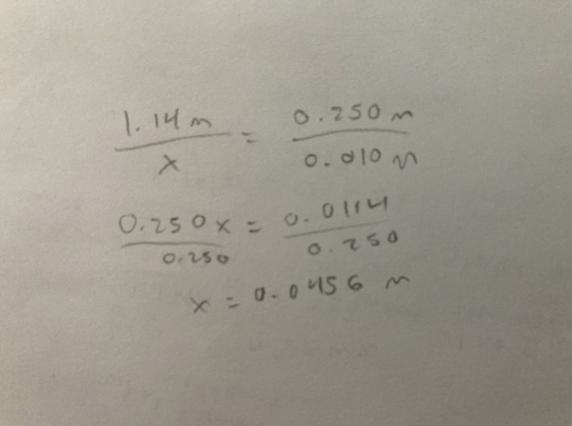 1.14 m / x = 0.250 m / 0.010 m
0.250x / 0.250 = 0.0114 / 0.250
x = 0.0456 m